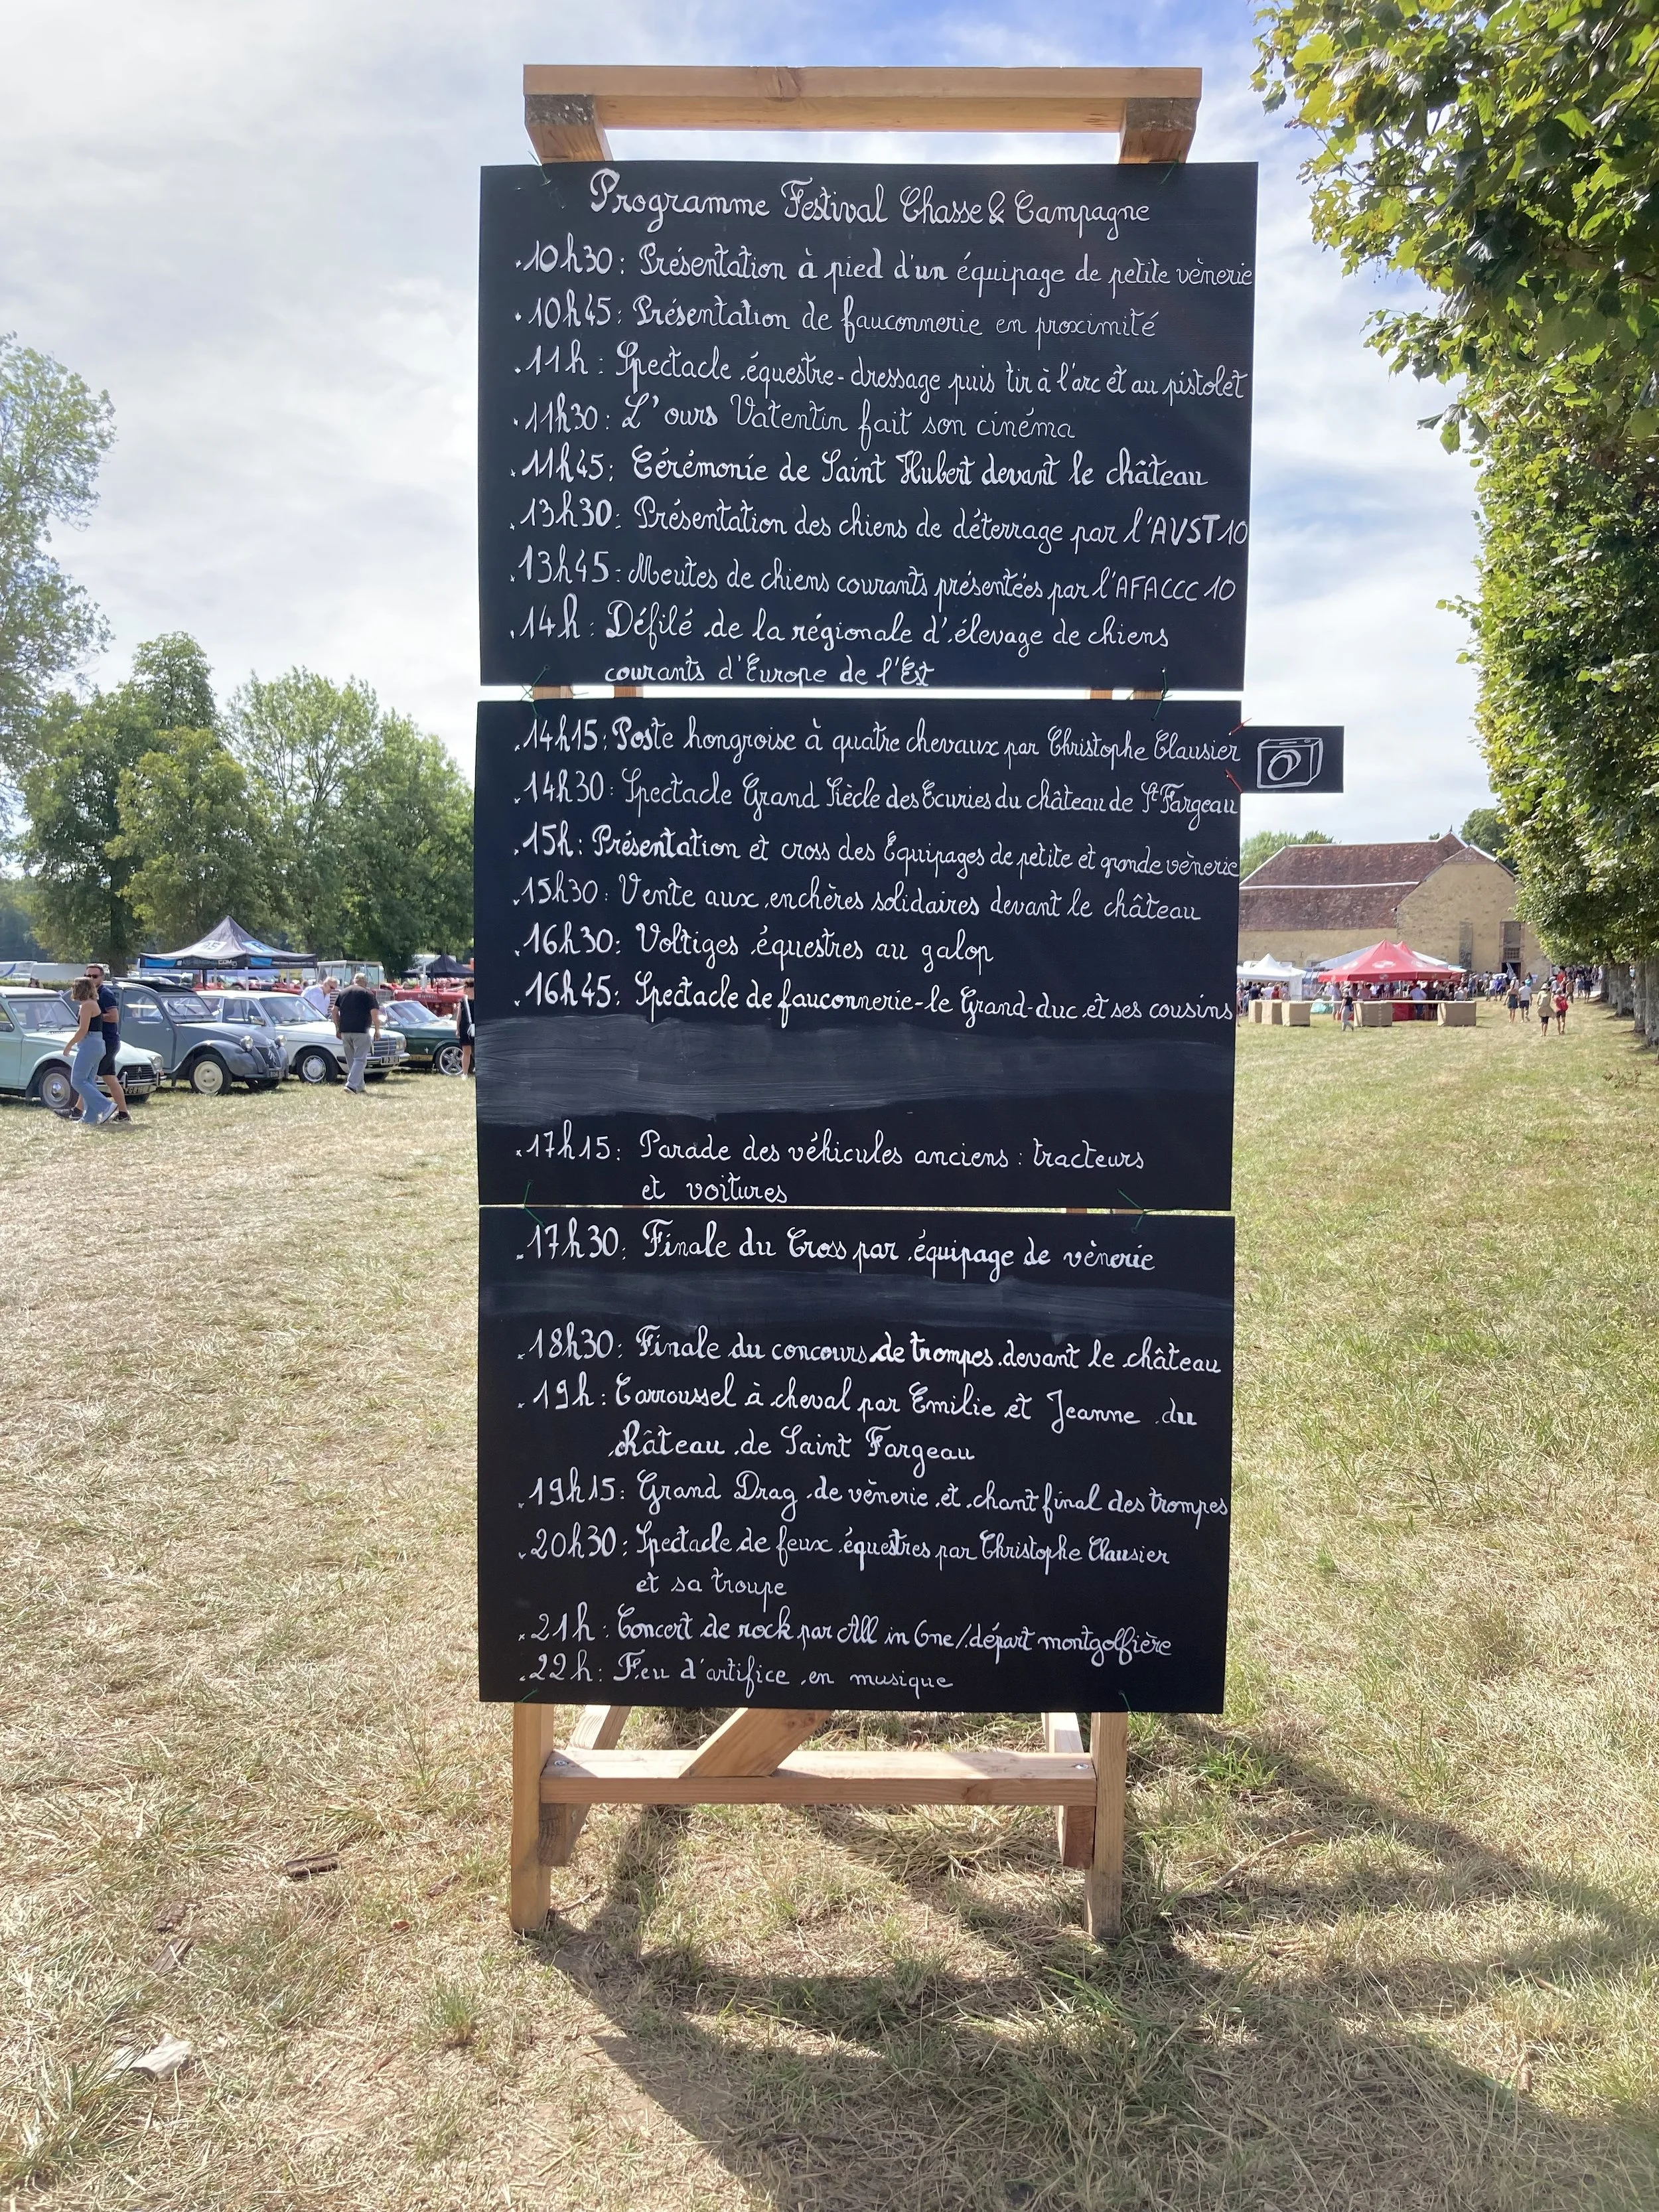 Programme Festival Chasse & Campagne
.10h30: Présentation à pied d'un équipage de petite vènerie
.10h45: Présentation de fauconnerie en proximité
.11h: Spectacle équestre-dressage puis tir à l'arc et au pistolet
.11h30: L'ours Vatentin fait son cinéma
.11h45: Cérémonie de Saint Hubert devant le château
.13h30: Présentation des chiens de déterrage par l'AVST10
.13h45: Meutes de chiens courants présentées par l'AFACCC 10
.14h: Défilé de la régionale d'élevage de chiens
courants d'Europe de l'Est
.14h15: Poste hongroise à quatre chevaux par Christophe Clausier
.14h30: Spectacle Grand Siècle des Ecuries du château de St Fargeau
.15h: Présentation et cross des Equipages de petite et grande vènerie
.15h30: Vente aux enchères solidaires devant le château
.16h30: Voltiges équestres au galop
.16h45: Spectacle de fauconnerie-le Grand-duc et ses cousins
.17h15: Parade des véhicules anciens: tracteurs
et voitures
.17h30: Finale du Cross par équipage de vènerie
.18h30: Finale du concours de trompes devant le château
.19h: Carroussel à cheval par Emilie et Jeanne du
château de Saint Fargeau
.19h15: Grand Drag de vènerie et chant final des trompes
.20h30: Spectacle de feux équestres par Christophe Clausier
et sa troupe
.21h: Concert de rock par All in One/départ montgolfière
.22h: Feu d'artifice en musique